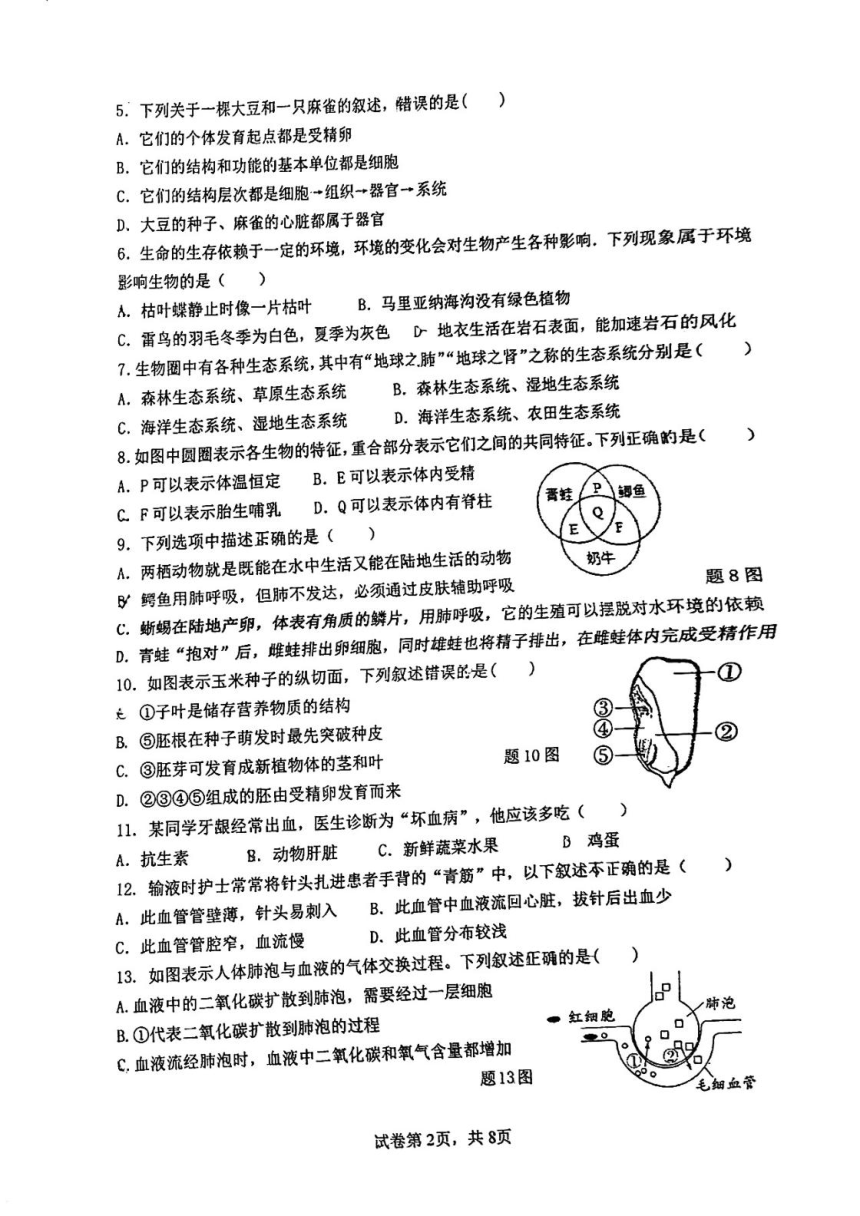 5. 下列关于一棵大豆和一只麻雀的叙述，错误的是(　　)
A. 它们的个体发育起点都是受精卵
B. 它们的结构和功能的基本单位都是细胞
C. 它们的结构层次都是细胞→组织→器官→系统
D. 大豆的种子、麻雀的心脏都属于器官
6. 生命的生存依赖于一定的环境，环境的变化会对生物产生各种影响．下列现象属于环境
影响生物的是（　　）
A. 枯叶蝶静止时像一片枯叶　　B. 马里亚纳海沟没有绿色植物
C. 雷鸟的羽毛冬季为白色，夏季为灰色　D 地衣生活在岩石表面，能加速岩石的风化
7. 生物圈中有各种生态系统，其中有“地球之肺”“地球之肾”之称的生态系统分别是(　　)
A. 森林生态系统、草原生态系统　　B. 森林生态系统、湿地生态系统
C. 海洋生态系统、湿地生态系统　　D. 海洋生态系统、农田生态系统
8. 如图中圆圈表示各生物的特征，重合部分表示它们之间的共同特征。下列正确的是(　　)
A. P可以表示体温恒定　B. E可以表示体内受精
C. F可以表示胎生哺乳　D. Q可以表示体内有脊柱
青蛙 P 鲫鱼
Q
E F
奶牛
题8图
9. 下列选项中描述正确的是（　　）
A. 两栖动物就是既能在水中生活又能在陆地生活的动物
B 鳄鱼用肺呼吸，但肺不发达，必须通过皮肤辅助呼吸
C. 蜥蜴在陆地产卵，体表有角质的鳞片，用肺呼吸，它的生殖可以摆脱对水环境的依赖
D. 青蛙“抱对”后，雌蛙排出卵细胞，同时雄蛙也将精子排出，在雌蛙体内完成受精作用
10. 如图表示玉米种子的纵切面，下列叙述错误的是(　　)
①子叶是储存营养物质的结构
B. ⑤胚根在种子萌发时最先突破种皮
C. ③胚芽可发育成新植物体的茎和叶
D. ②③④⑤组成的胚由受精卵发育而来
①
③
④ ②
⑤
题10图
11. 某同学牙龈经常出血，医生诊断为“坏血病”，他应该多吃（　　）
A. 抗生素　　B. 动物肝脏　　C. 新鲜蔬菜水果　　D 鸡蛋
12. 输液时护士常常将针头扎进患者手背的“青筋”中，以下叙述不正确的是（　　）
A. 此血管管壁薄，针头易刺入　　B. 此血管中血液流回心脏，拔针后出血少
C. 此血管管腔窄，血流慢　　D. 此血管分布较浅
13. 如图表示人体肺泡与血液的气体交换过程。下列叙述正确的是(　　)
A. 血液中的二氧化碳扩散到肺泡，需要经过一层细胞
B. ①代表二氧化碳扩散到肺泡的过程
C. 血液流经肺泡时，血液中二氧化碳和氧气含量都增加
红细胞
肺泡
① ②
毛细血管
题13图
试卷第2页，共8页